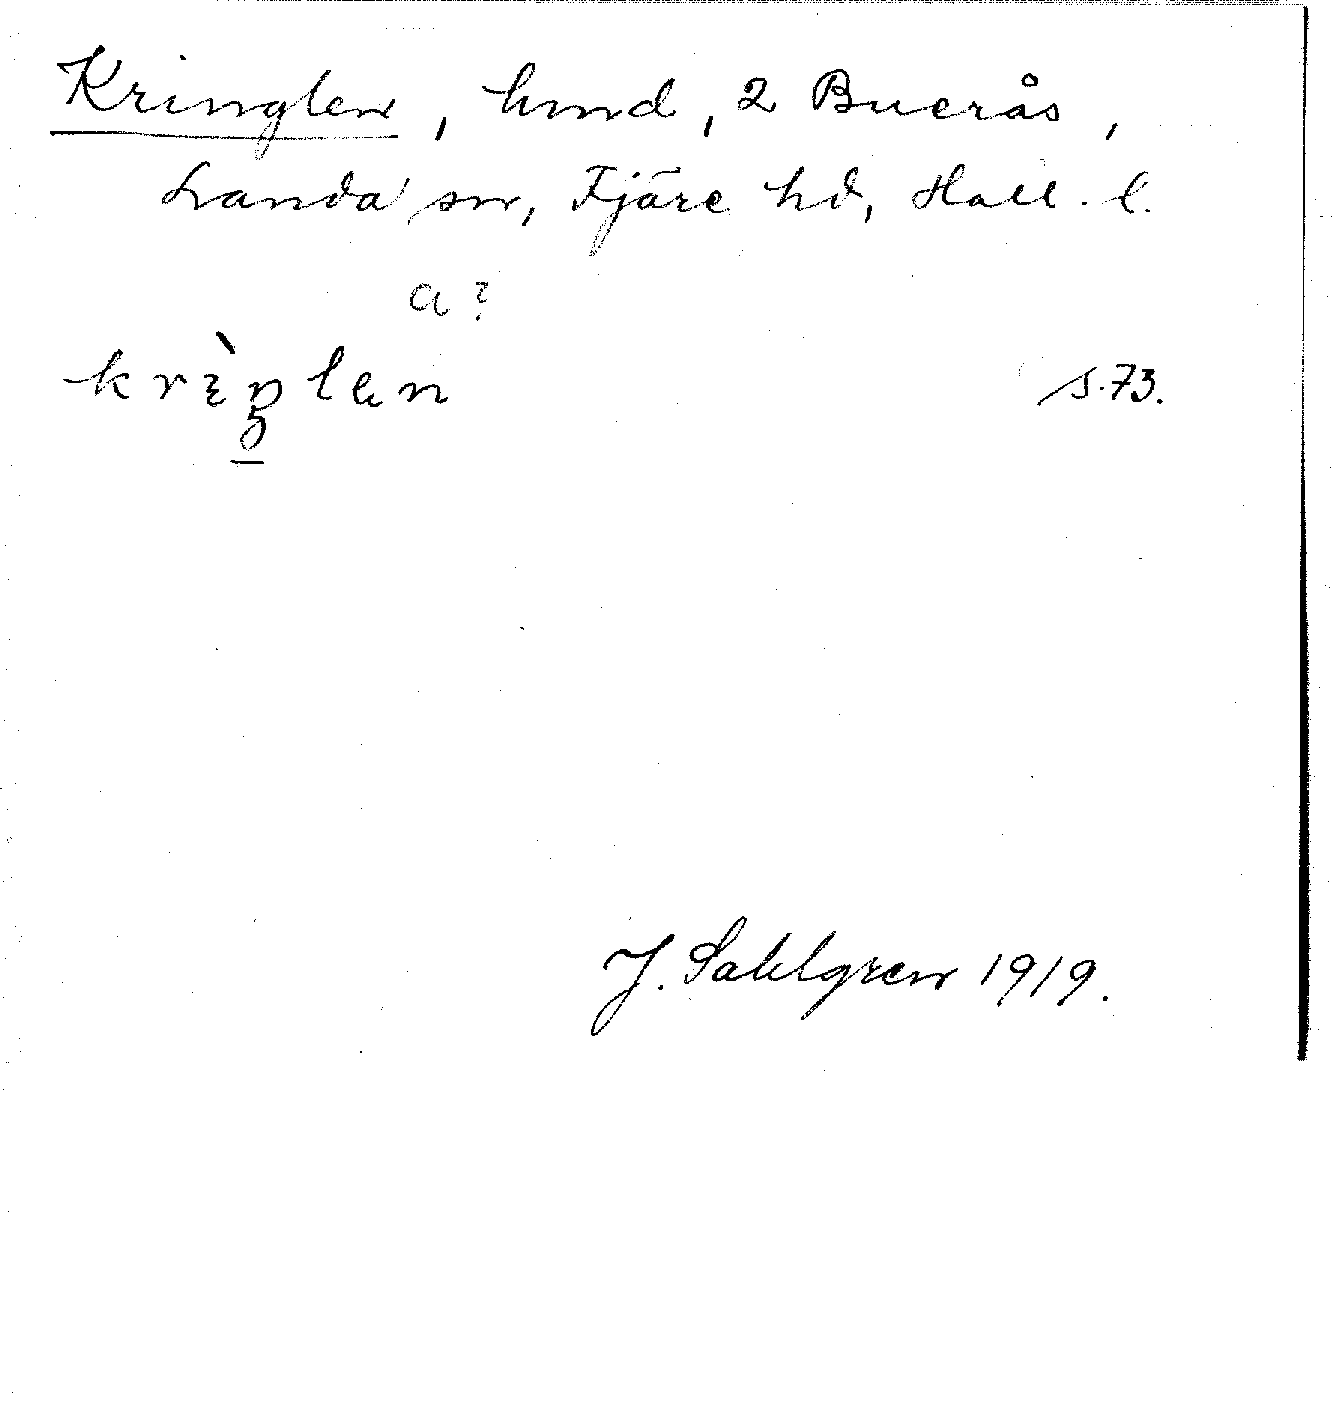 Kringlen, hmd, 2 Buerås,
Landa sn, Fjäre hd, Hall. l.
a?
s. 73.
J. Sahlgren 1919.